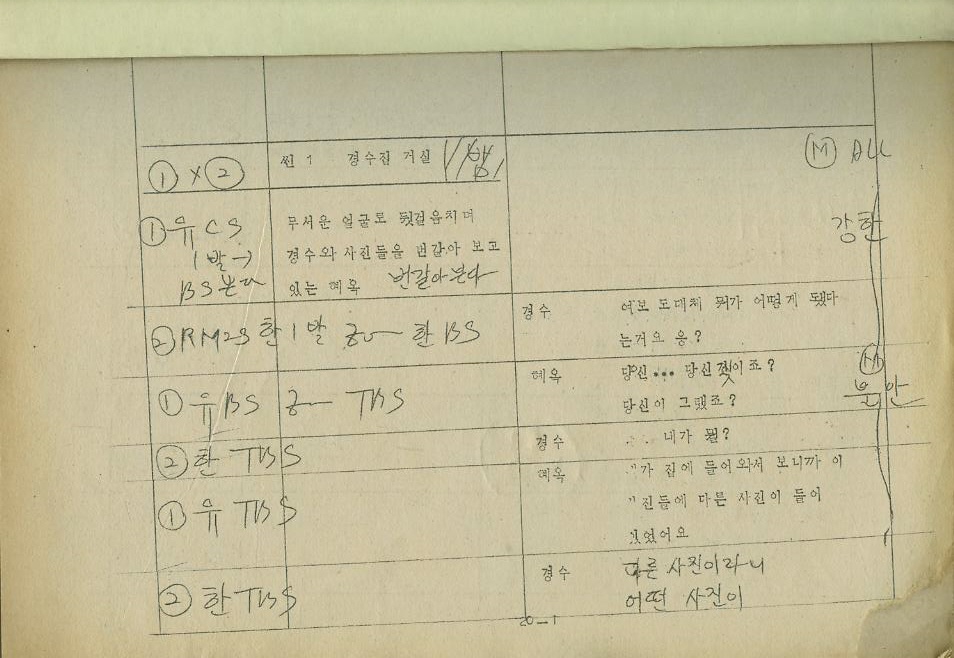 ① X ② 씬 1 경수집 거실 / 밤 Ⓜ ALL
① 유 CS 무서운 얼굴로 뒷걸음치며 강한
1발→ 경수와 사진들을 번갈아 보고
BS 본다 있는 혜옥 번갈아본다
② RM2S 한 1발 한 BS 경수 여보 도대체 뭐가 어떻게 됐다
는거요 응?
혜옥 당신... 당신 짓이죠? Ⓜ
① 유 BS TBS 당신이 그랬죠? 불안
② 한 TBS 경수 내가 뭘?
혜옥 가 집에 들어와서 보니까 이
① 유 TBS 진들에 다른 사진이 들어
있었어요
경수 다른 사진이라니
② 한 TBS 어떤 사진이
20-1